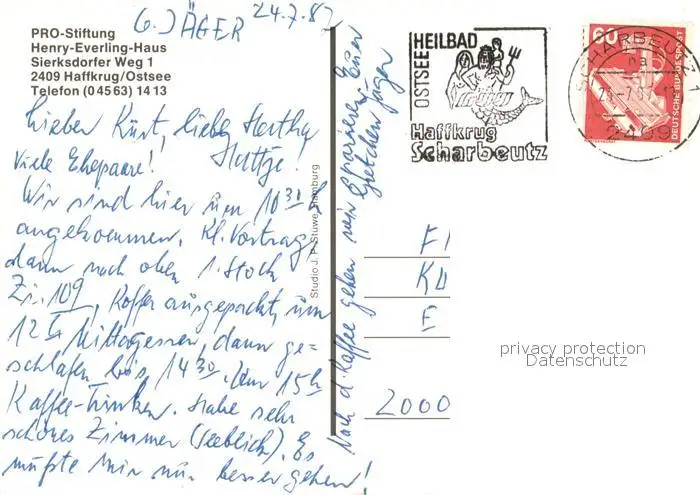 G. JÄGER 24.7.87
PRO-Stiftung
Henry-Everling-Haus
Sierksdorfer Weg 1
2409 Haffkrug/Ostsee
Telefon (0 45 63) 14 13
Lieber Kurt, liebe Hertha
viele Ehepaare!
Wir sind hier um 10 30 h
angekommen, Kl. Vortrag,
dann nach oben 1. Stock
Zi. 109, Koffer ausgepackt, um
12 h Mittagessen, dann ge=
schlafen bis 14 30. Um 15 h
Kaffee-Trinken. Habe sehr
schönes Zimmer (Seeblick). Es
müßte mir nur besser gehen!
Nach d. Kaffee gehen wir spazieren Euer
Gretchen Jäger
Studio J. F. Stüwe, Hamburg
OSTSEE HEILBAD
Haffkrug
Scharbeutz
SCHARBEUTZ 1
2409
60
DEUTSCHE BUNDESPOST
2000
privacy protection
Datenschutz